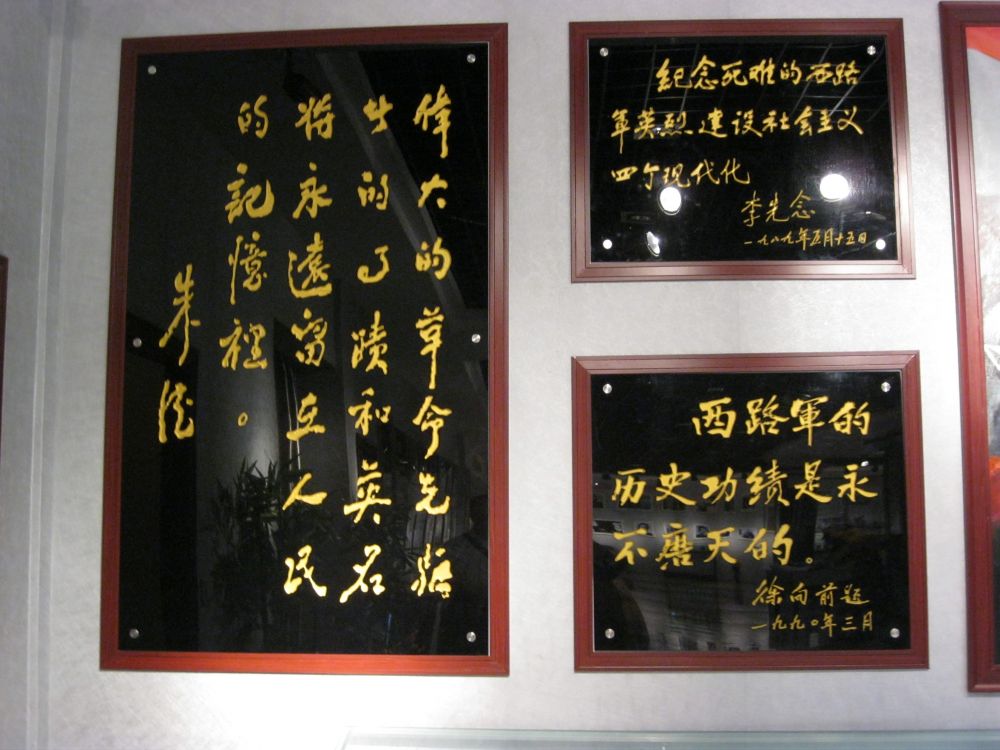 偉大的革命先驅
的事蹟和英名
将永遠留在人民
的記憶裡。
朱德
纪念死难的西路
军英烈建设社会主义
四个现代化
李先念
一九八九年五月十五日
西路軍的
历史功绩是永
不磨灭的。
徐向前题
一九九〇年三月